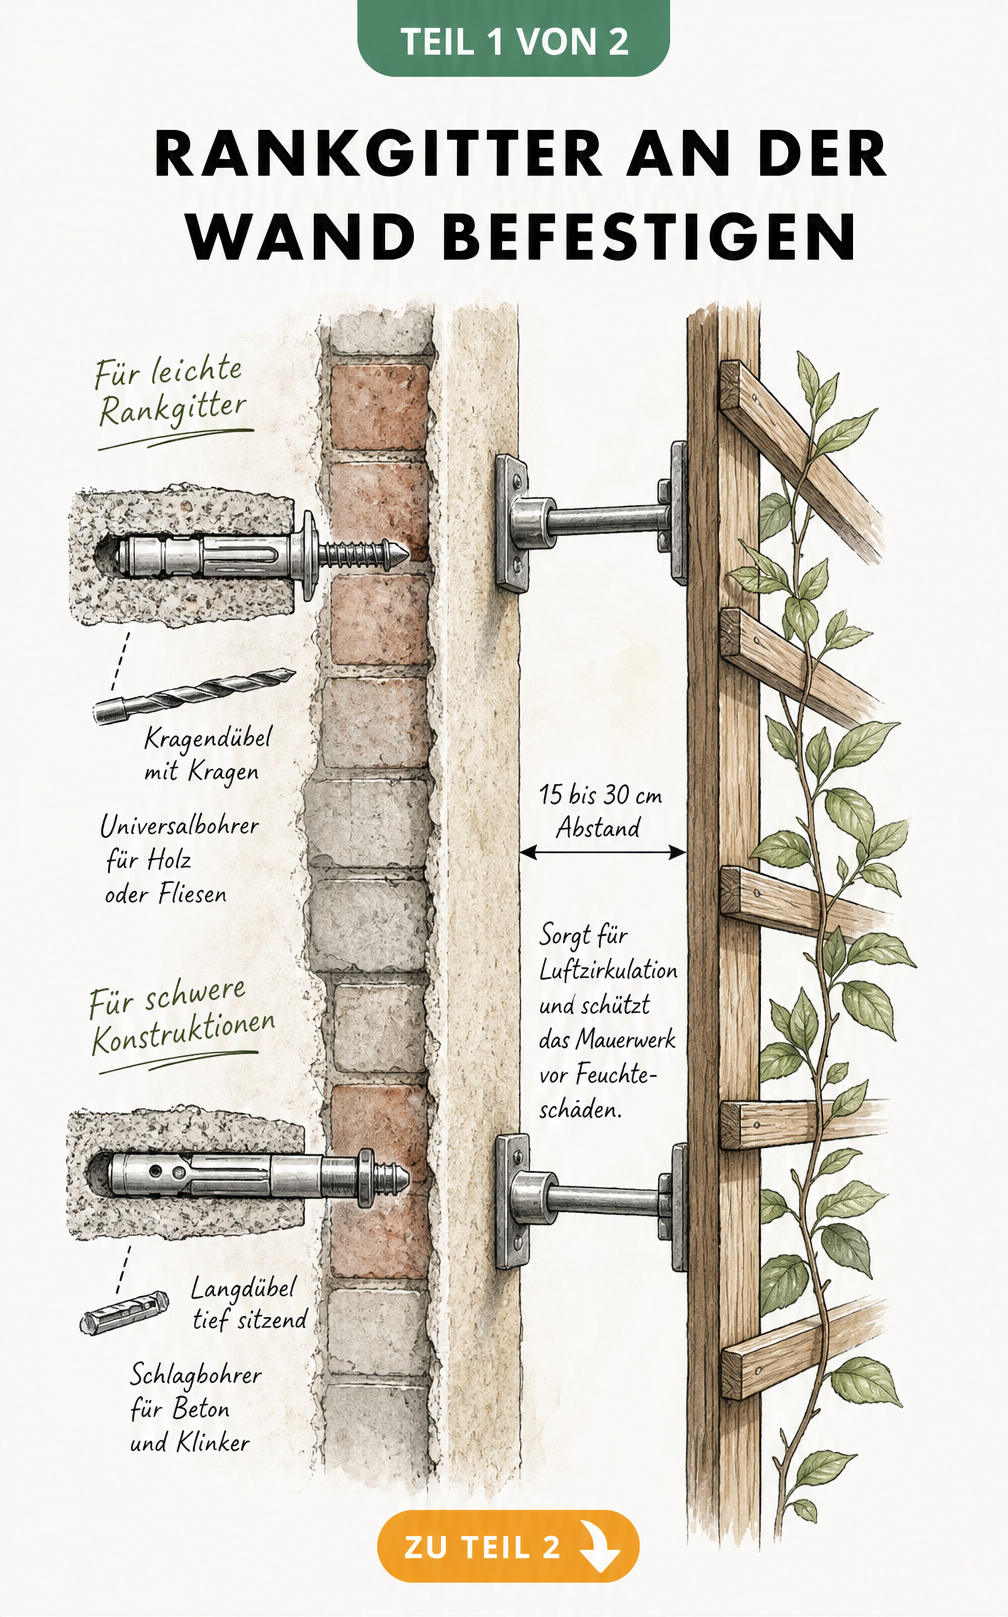 TEIL 1 VON 2
RANKGITTER AN DER
WAND BEFESTIGEN
Für leichte
Rankgitter
Kragendübel
mit Kragen
Universalbohrer
für Holz
oder Fliesen
15 bis 30 cm
Abstand
Sorgt für
Luftzirkulation
und schützt
das Mauerwerk
vor Feuchte-
schäden.
Für schwere
Konstruktionen
Langdübel
tief sitzend
Schlagbohrer
für Beton
und Klinker
ZU TEIL 2